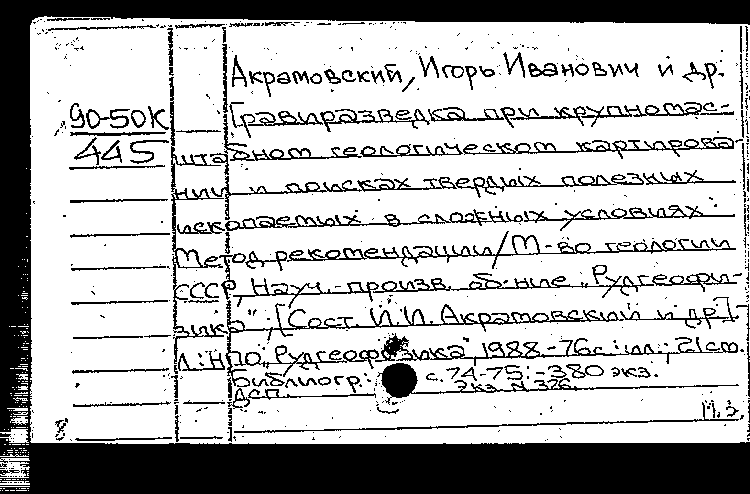 Акрамовский, Игорь Иванович и др.
90-50К
445
Гравиразведка при крупномас-
штабном геологическом картирова-
нии и поисках твердых полезных
ископаемых в сложных условиях:
Метод. рекомендации/М-во геологии
СССР, Науч.-произв. об-ние „Рудгеофи-
зика", [Сост. И.И. Акрамовский и др.].-
Л.: НПО „Рудгеофизика", 1988.-76с.: ил.; 21см.
Библиогр.: с.74-75.-380 экз.
ДСП. Экз. N 326.
8